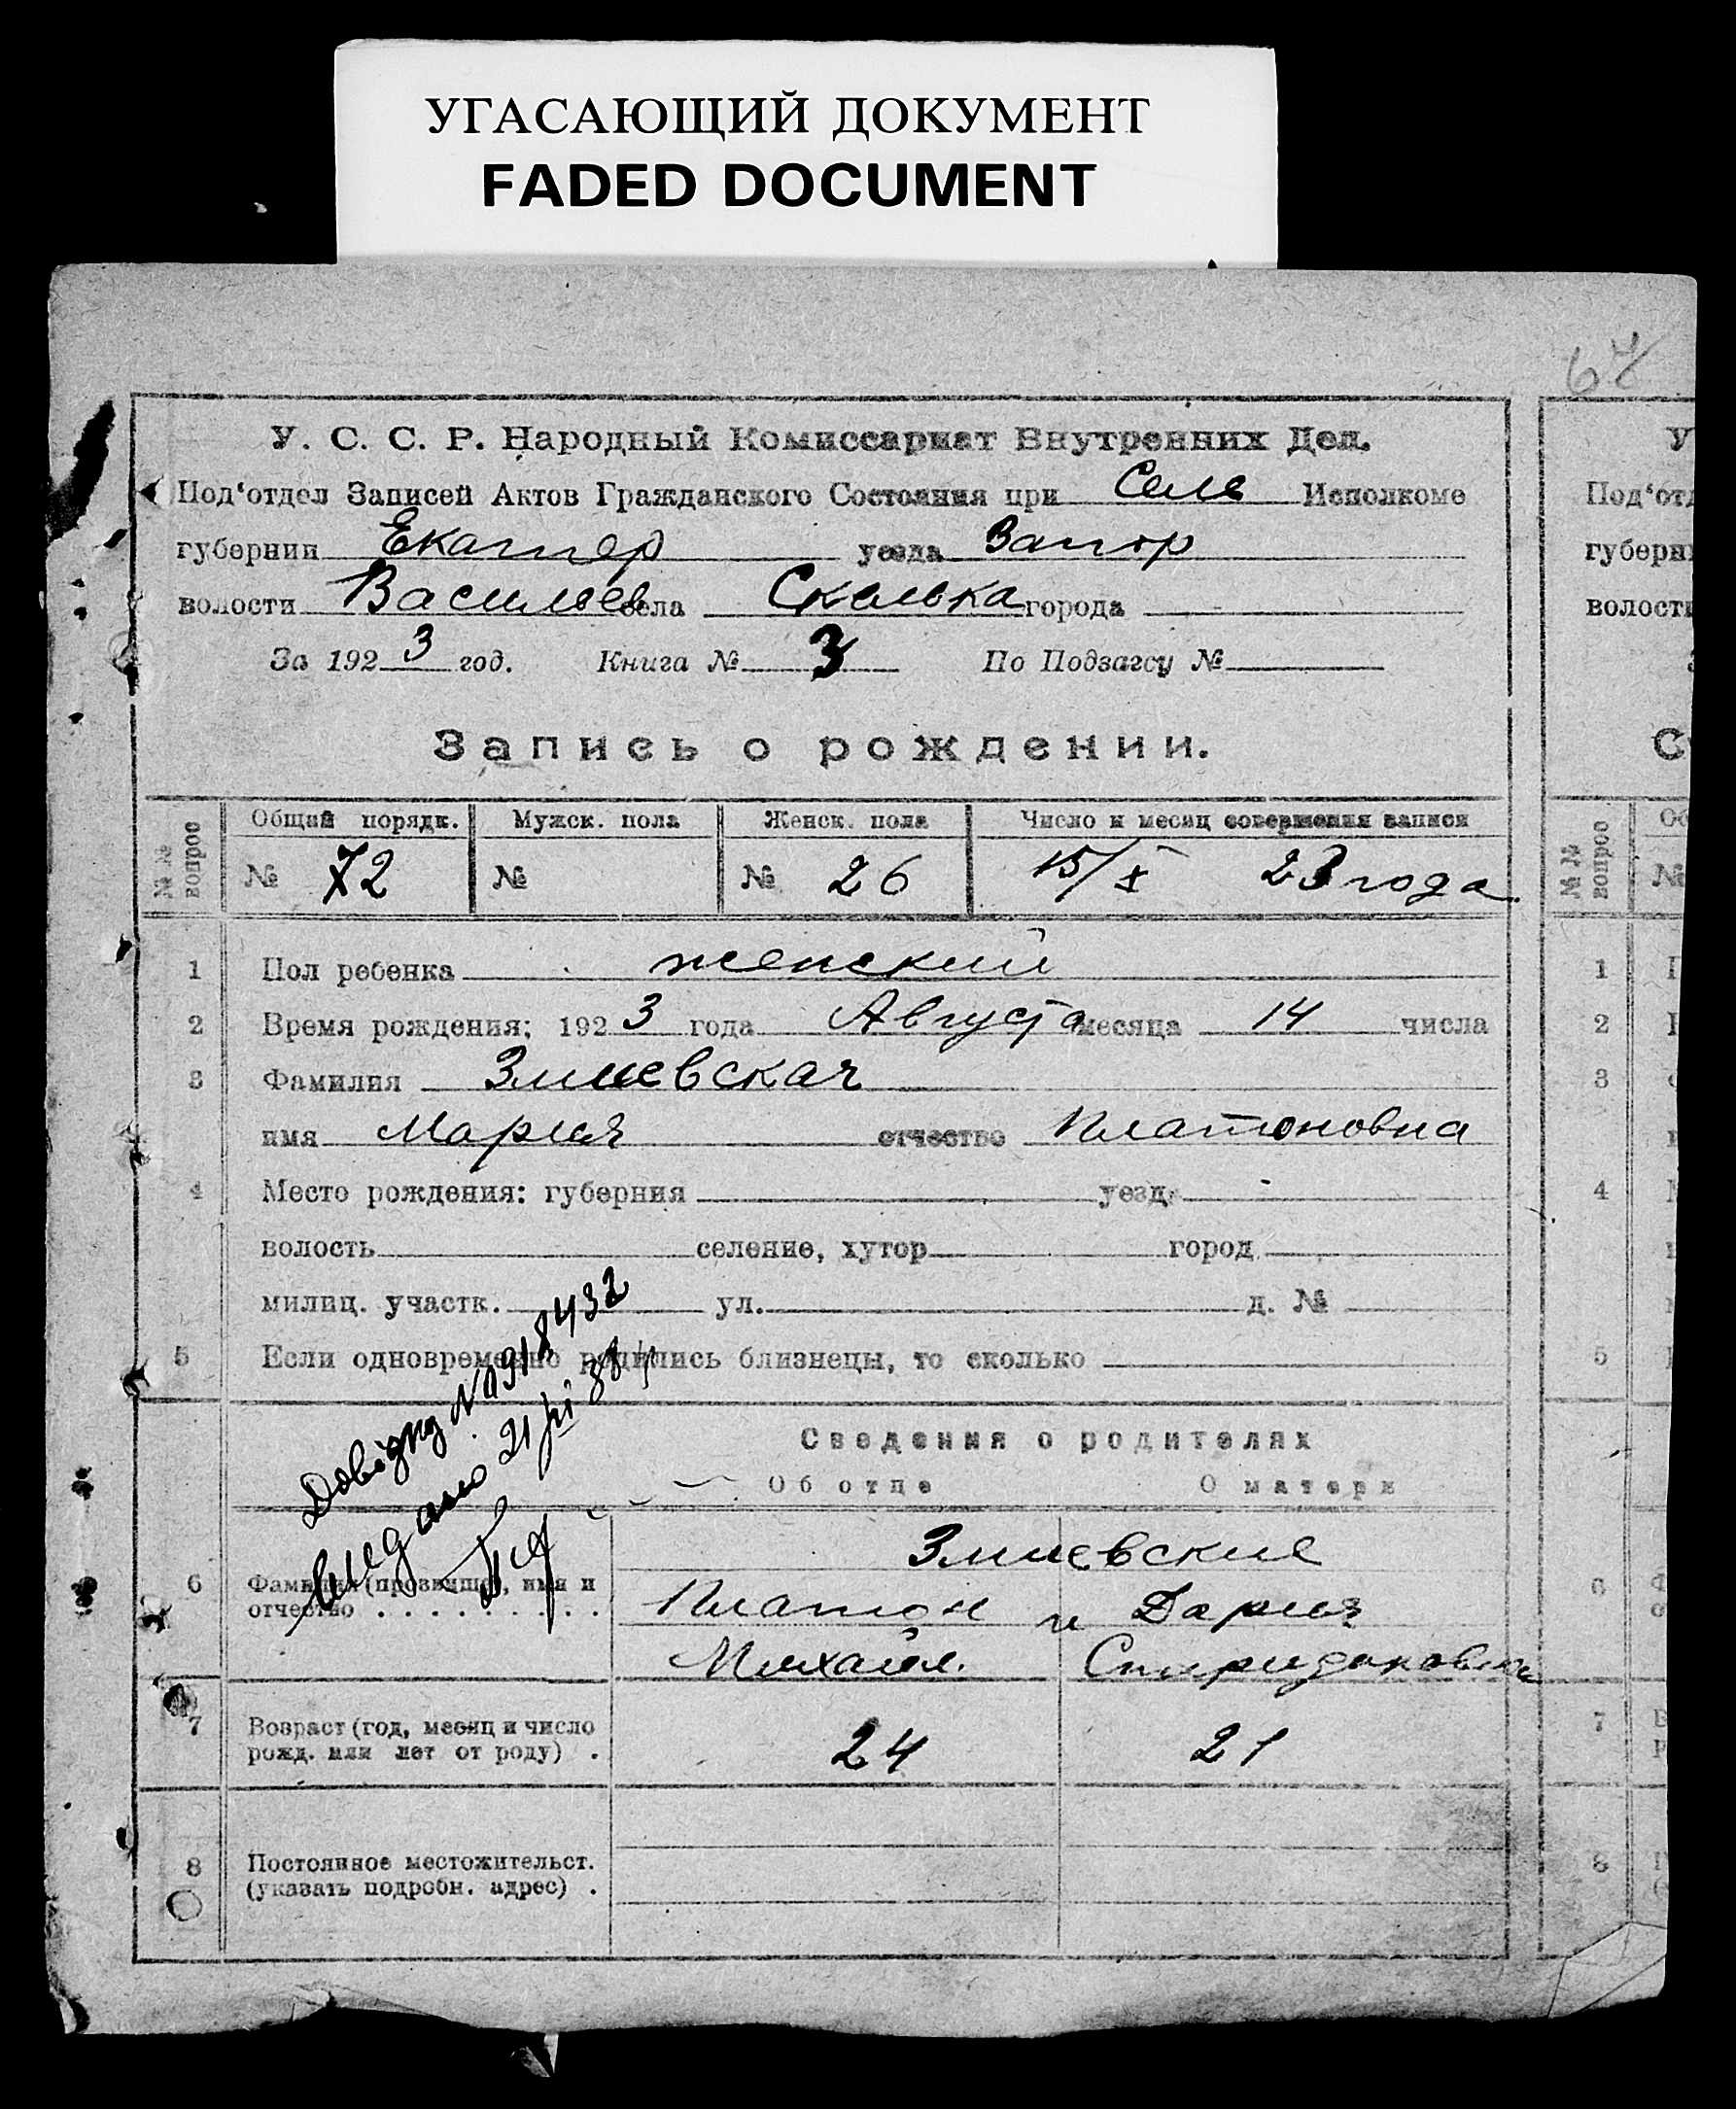 УГАСАЮЩИЙ ДОКУМЕНТ
FADED DOCUMENT
67
У. С. С. Р. Народный Комиссариат Внутренних Дел.
Под‘отдел Записей Актов Гражданского Состояния при Сель Исполкоме
губернии Екатер уезда Запор
волости Васильев села Скелька города
За 1923 год. Книга № 3 По Подзагсу №
Запись о рождении.
№№ вопрос
Общий порядк. Мужск. пола Женск. пола Число и месяц совершения записи
№ 72 № № 26 15/X 23 года
1 Пол ребенка женский
2 Время рождения: 1923 года Августа месяца 14 числа
3 Фамилия Змиевская
имя Мария отчество Платоновна
4 Место рождения: губерния уезд
волость селение, хутор город
милиц. участк. ул. д. №
5 Если одновременно родились близнецы, то сколько
Довідку № 0918432
видано 21/VI 38 р
Сведения о родителях
Об отце О матери
Змиевские
6 Фамилия (прозвище), имя и
отчество
Платон и Дария
Михайл. Спиридоновна
7 Возраст (год, месяц и число
рожд. или лет от роду) .
24 21
8 Постоянное местожительст.
(указать подробн. адрес) .
У
Под‘отд
губерни
волости
№№ вопрос
№
1
2
3
4
5
6
7
8